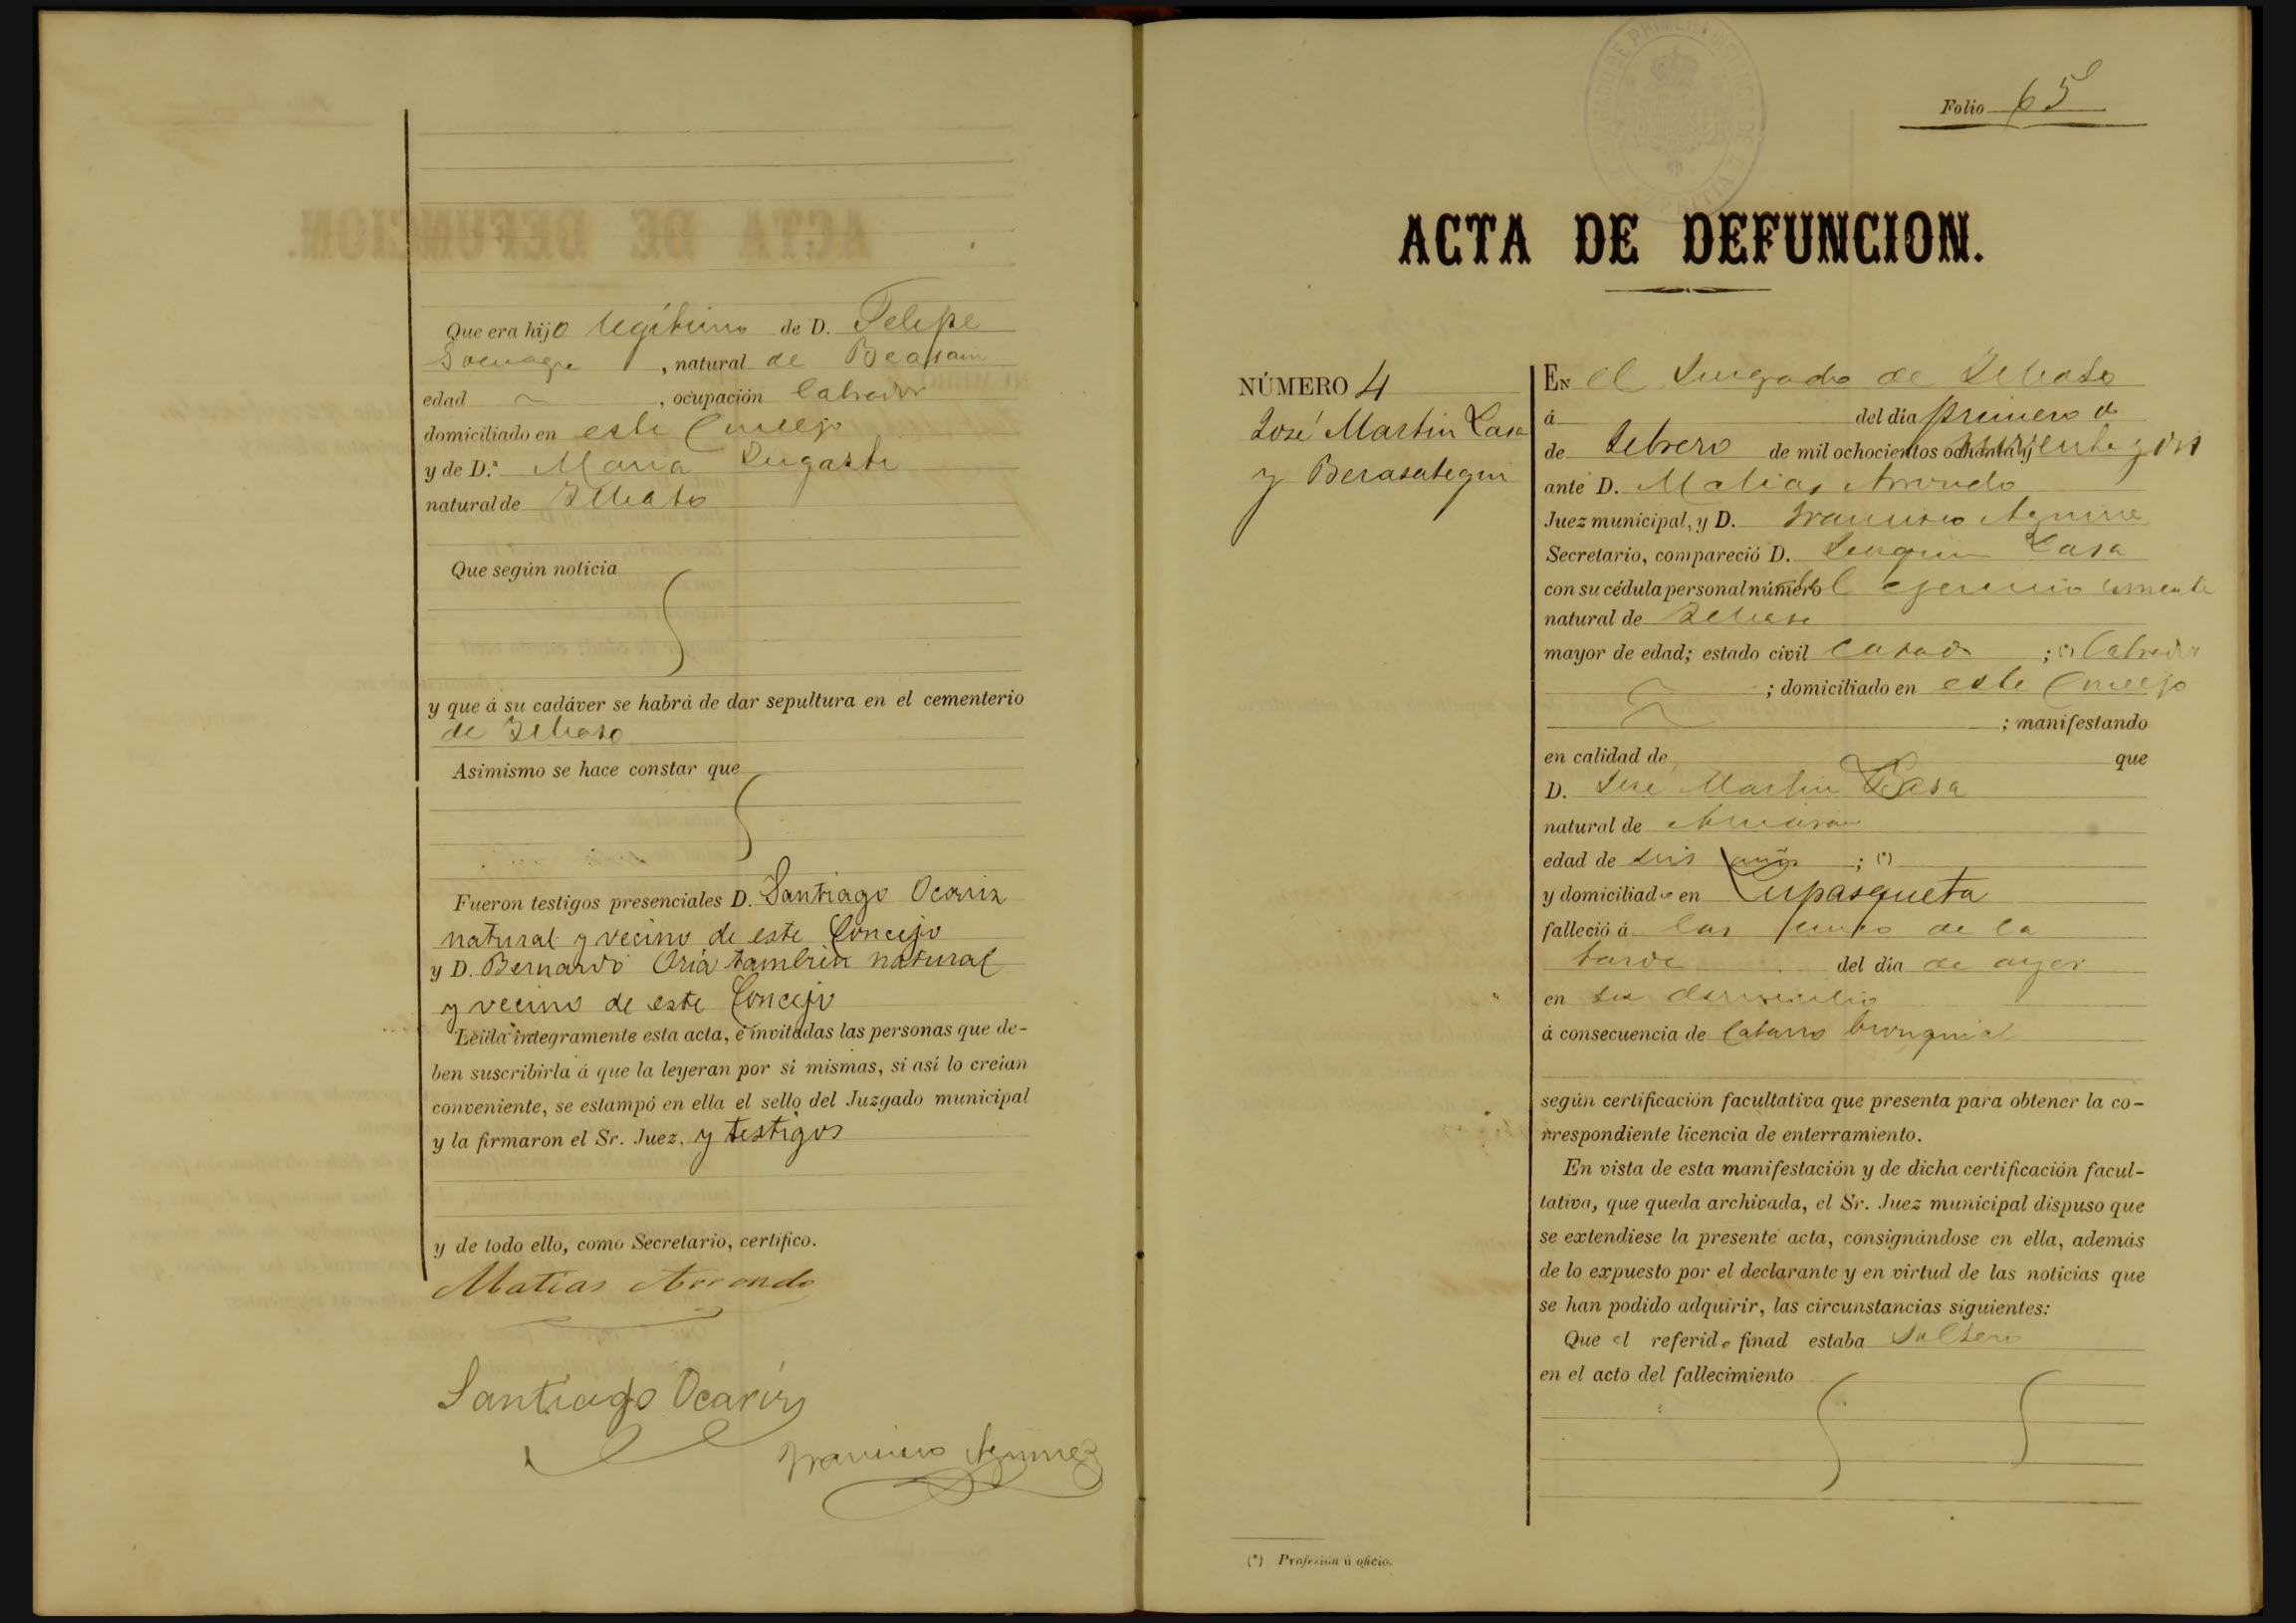 Que era hijo legítimo de D. Felipe
, natural de Beasain
edad , ocupación labrador
domiciliado en este Concejo
y de D.ª Maria
natural de
Que según noticia
y que á su cadáver se habrá de dar sepultura en el cementerio
de
Asimismo se hace constar que
Fueron testigos presenciales D. Santiago Ocariz
natural y vecino de este Concejo
y D. Bernardo Oria tambien natural
y vecino de este Concejo
Leida íntegramente esta acta, é invitadas las personas que de-
ben suscribirla á que la leyeran por sí mismas, si así lo creían
conveniente, se estampó en ella el sello del Juzgado municipal
y la firmaron el Sr. Juez, y testigos
y de todo ello, como Secretario, certifico.
Matias Arrondo
Santiago Ocariz
Francisco Aguirre
Folio 65
ACTA DE DEFUNCION.
NÚMERO 4
José Martin Lasa
y Berasategui
EN el Jurgado de
á del día primero de
de Febrero de mil ochocientos
ante D. Matias Arrondo
Juez municipal, y D. Francisco Aguirre
Secretario, compareció D. Lasa
con su cédula personal número
natural de
mayor de edad; estado civil casado ; (*) labrador
; domiciliado en este Concejo
; manifestando
en calidad de que
D. Jose Martin Lasa
natural de
edad de seis años ; (*)
y domiciliado en Lupasqueta
falleció á las de la
tarde del día de ayer
en su domicilio
á consecuencia de Catarro bronquial
según certificación facultativa que presenta para obtener la co-
rrespondiente licencia de enterramiento.
En vista de esta manifestación y de dicha certificación facul-
tativa, que queda archivada, el Sr. Juez municipal dispuso que
se extendiese la presente acta, consignándose en ella, además
de lo expuesto por el declarante y en virtud de las noticias que
se han podido adquirir, las circunstancias siguientes:
Que el referido finad estaba Soltero
en el acto del fallecimiento
(*) Profesión ú oficio.